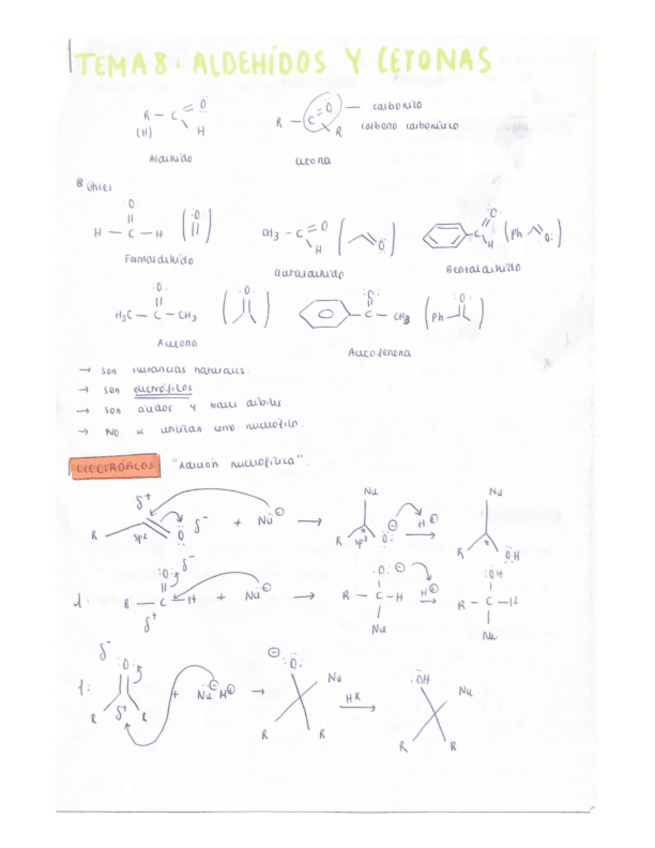 TEMA 8. ALDEHÍDOS Y CETONAS
R - C = O
(H) H
Aldehído
R - C = O
R
carbonilo
carbono carbonílico
Cetona
O
H - C - H
Formaldehído
CH3 - C = O
H
Acetaldehído
C = O
H
(Ph O)
Benzaldehído
O
H3C - C - CH3
Acetona
O
C - CH3
(Ph O)
Acetofenona
→ son sustancias naturales.
→ son electrófilos.
→ son ácidos y bases débiles.
→ No se utilizan como nucleófilo.
ELECTRÓFILOS "Adición nucleofílica".
δ+
R sp2 O δ-
+ Nu⊖ →
Nu
R sp3 O⊖ H⊕ →
Nu
R * OH
O δ-
1: R - C - H + Nu⊖ →
δ+
O⊖
R - C - H H⊕ →
Nu
OH
R - C - H
Nu
δ-
1: O
R δ+ R
+ Nu⊖ M⊕ →
⊖ O
Nu
R R
HX →
OH
Nu
R R